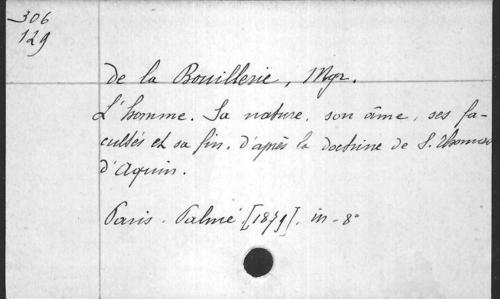 306
129
de la Bouillerie, Mgr.
L'homme. Sa nature, son âme, ses fa-
cultés et sa fin, d'après la doctrine de S. Thomas
d'Aquin.
Paris. Palmé [1879]. in-8°